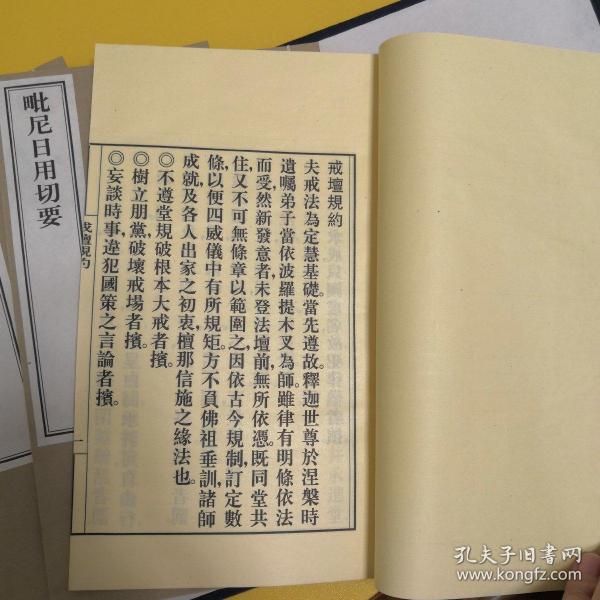 戒壇規約
夫戒法為定慧基礎。當先遵故。釋迦世尊於涅槃時
遺囑弟子當依波羅提木叉為師。雖律有明條依法
而受。然新發意者未登法壇前,無所依憑。既同堂共
住,又不可無條章以範圍之。因依古今規制,訂定數
條,以便四威儀中有所規矩。方不負佛祖垂訓,諸師
成就及各人出家之初衷,檀那信施之緣法也。
◎不遵堂規破根本大戒者擯。
◎樹立朋黨破壞戒場者擯。
◎妄談時事違犯國策之言論者擯。
戒壇規約
一
毗尼日用切要
孔夫子旧书网
www.kongfz.com